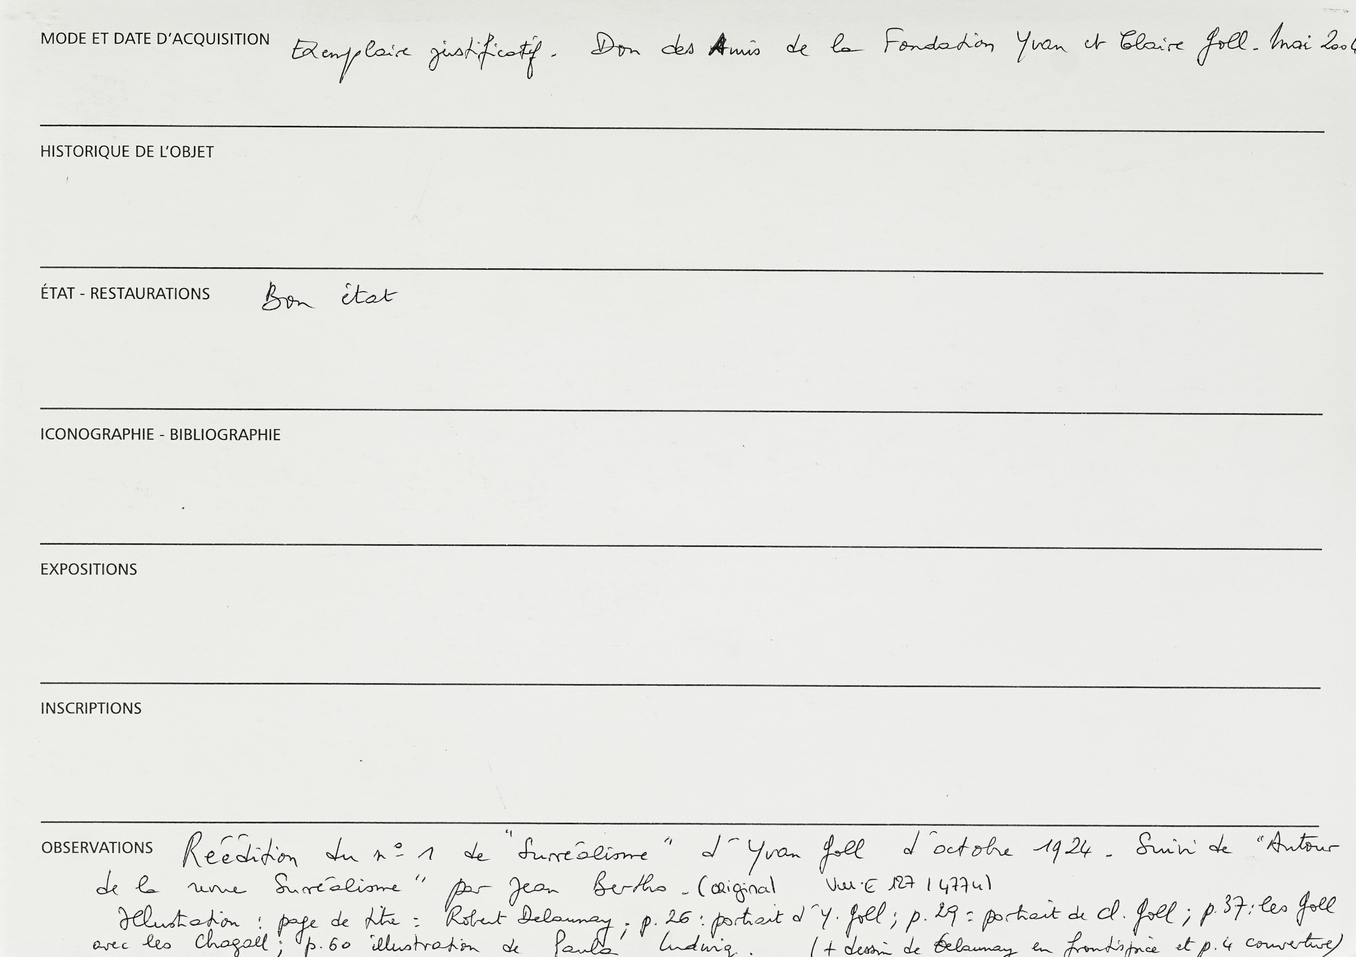 MODE ET DATE D'ACQUISITION Exemplaire justificatif. Don des Amis de la Fondation Yvan et Claire Goll. Mai
HISTORIQUE DE L'OBJET
ÉTAT - RESTAURATIONS Bon état
ICONOGRAPHIE - BIBLIOGRAPHIE
EXPOSITIONS
INSCRIPTIONS
OBSERVATIONS Réédition du n° 1 de "Surréalisme" d'Yvan Goll d'octobre 1924. Suivi de "Autour
de la revue Surréalisme" par Jean Bertho - (original
Illustration : page de titre : Robert Delaunay ; p. 26 : portrait d'Y. Goll ; p. 29 : portrait de Cl. Goll ; p. 37 : les Goll
avec les Chagall ; p. 60 illustration de Paula Ludwig. (+ dessin de Delaunay en frontispice et p. 4 couverture)